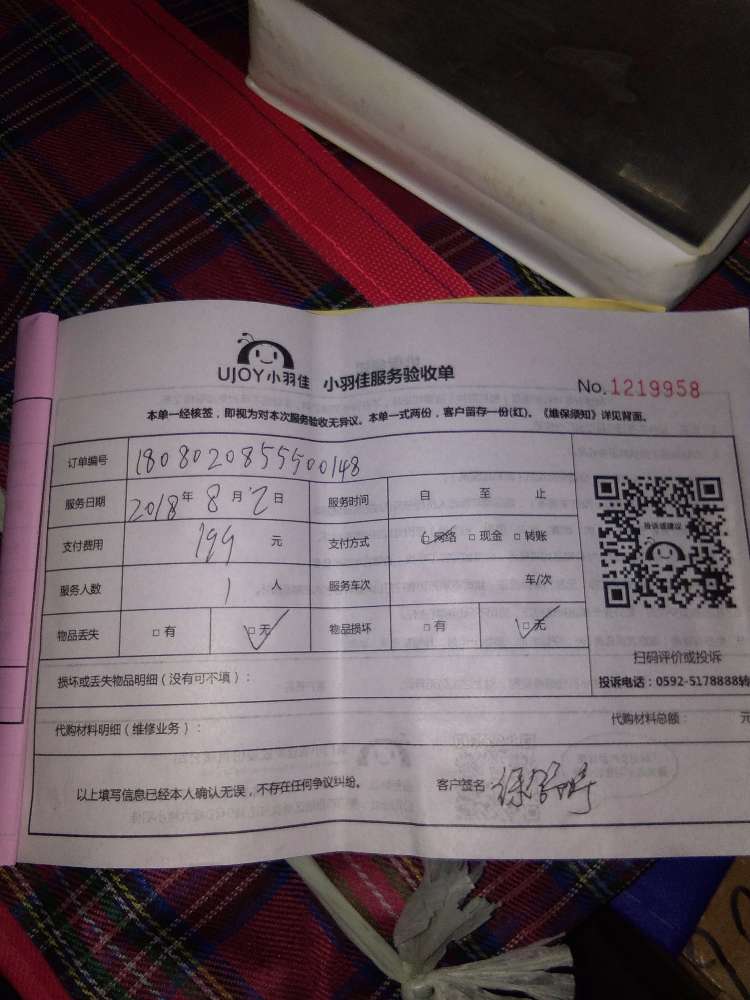 UJOY小羽佳 小羽佳服务验收单 No.1219958
本单一经核签，即视为对本次服务验收无异议。本单一式两份，客户留存一份(红)。《维保须知》详见背面。
订单编号 18080208555500148
服务日期 2018年8月2日 服务时间 自 至 止
支付费用 199元 支付方式 □网络 □现金 □转账
投诉或建议
服务人数 1人 服务车次 车/次
物品丢失 □有 □无 物品损坏 □有 □无
扫码评价或投诉
损坏或丢失物品明细（没有可不填）：
投诉电话：0592-5178888转
代购材料明细（维修业务）： 代购材料总额： 元
以上填写信息已经本人确认无误，不存在任何争议纠纷。 客户签名